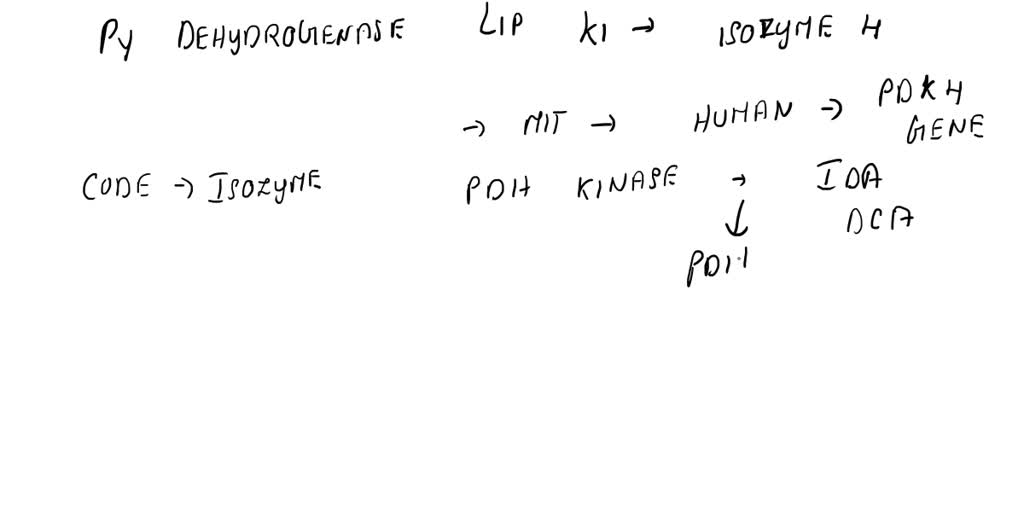 Py DEHYDROGENASE LIP KI → ISOZYME 4
→ MIT → HUMAN → PDK4
GENE
CODE → ISOZYME PDH KINASE → IDA
↓ DCA
PDH